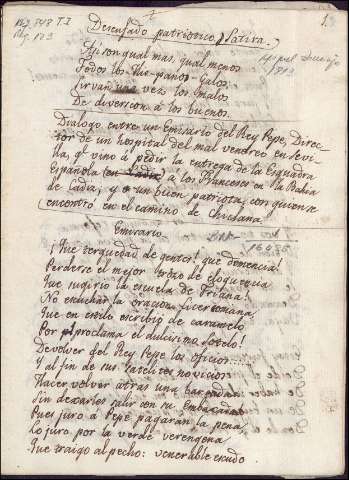 Desenfado patriotico, Satira.
Asi son qual mas, qual menos
Todos los His-panos-Galos.
Sirvan una vez los malos
De diversion á los buenos.
Dialogo entre un Emisario del Rey Pepe, Direc-
tor de un hospital del mal venereo en Sevi-
lla, qe vino á pedir la entrega de la Esquadra
Española á los Franceses en la Bahia
de Cadiz, y un buen patriota, con quien se
encontró en el camino de Chiclana.
Emisario
16485
¡Que terquedad de gentes! que demencia!
Perderse el mejor trozo de eloquencia
Que sugirió la escuela de Triana!
No escuchar la oracion Ciceroniana,
Que en estilo escribió de caramelo
Por proclama el dulcisimo Sotelo!
Devolver del Rey Pepe los oficios....
Y al fin de sus satelites novicios
Hacer volver atras una bandada
Sin dexarles salir con su embaxada
Pues juro á Pepe pagaran la pena,
Lo juro por la verde verengena
Que traigo al pecho: venerable escudo